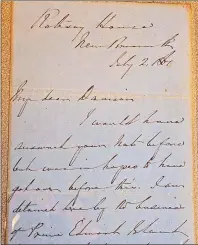 Rothsay House
New Brunswick
July 2. 186
My dear Davison
I would have
answered your Note before
but was in hopes to have
got over before this. I am
detained here by the business
of Prince Edward Island